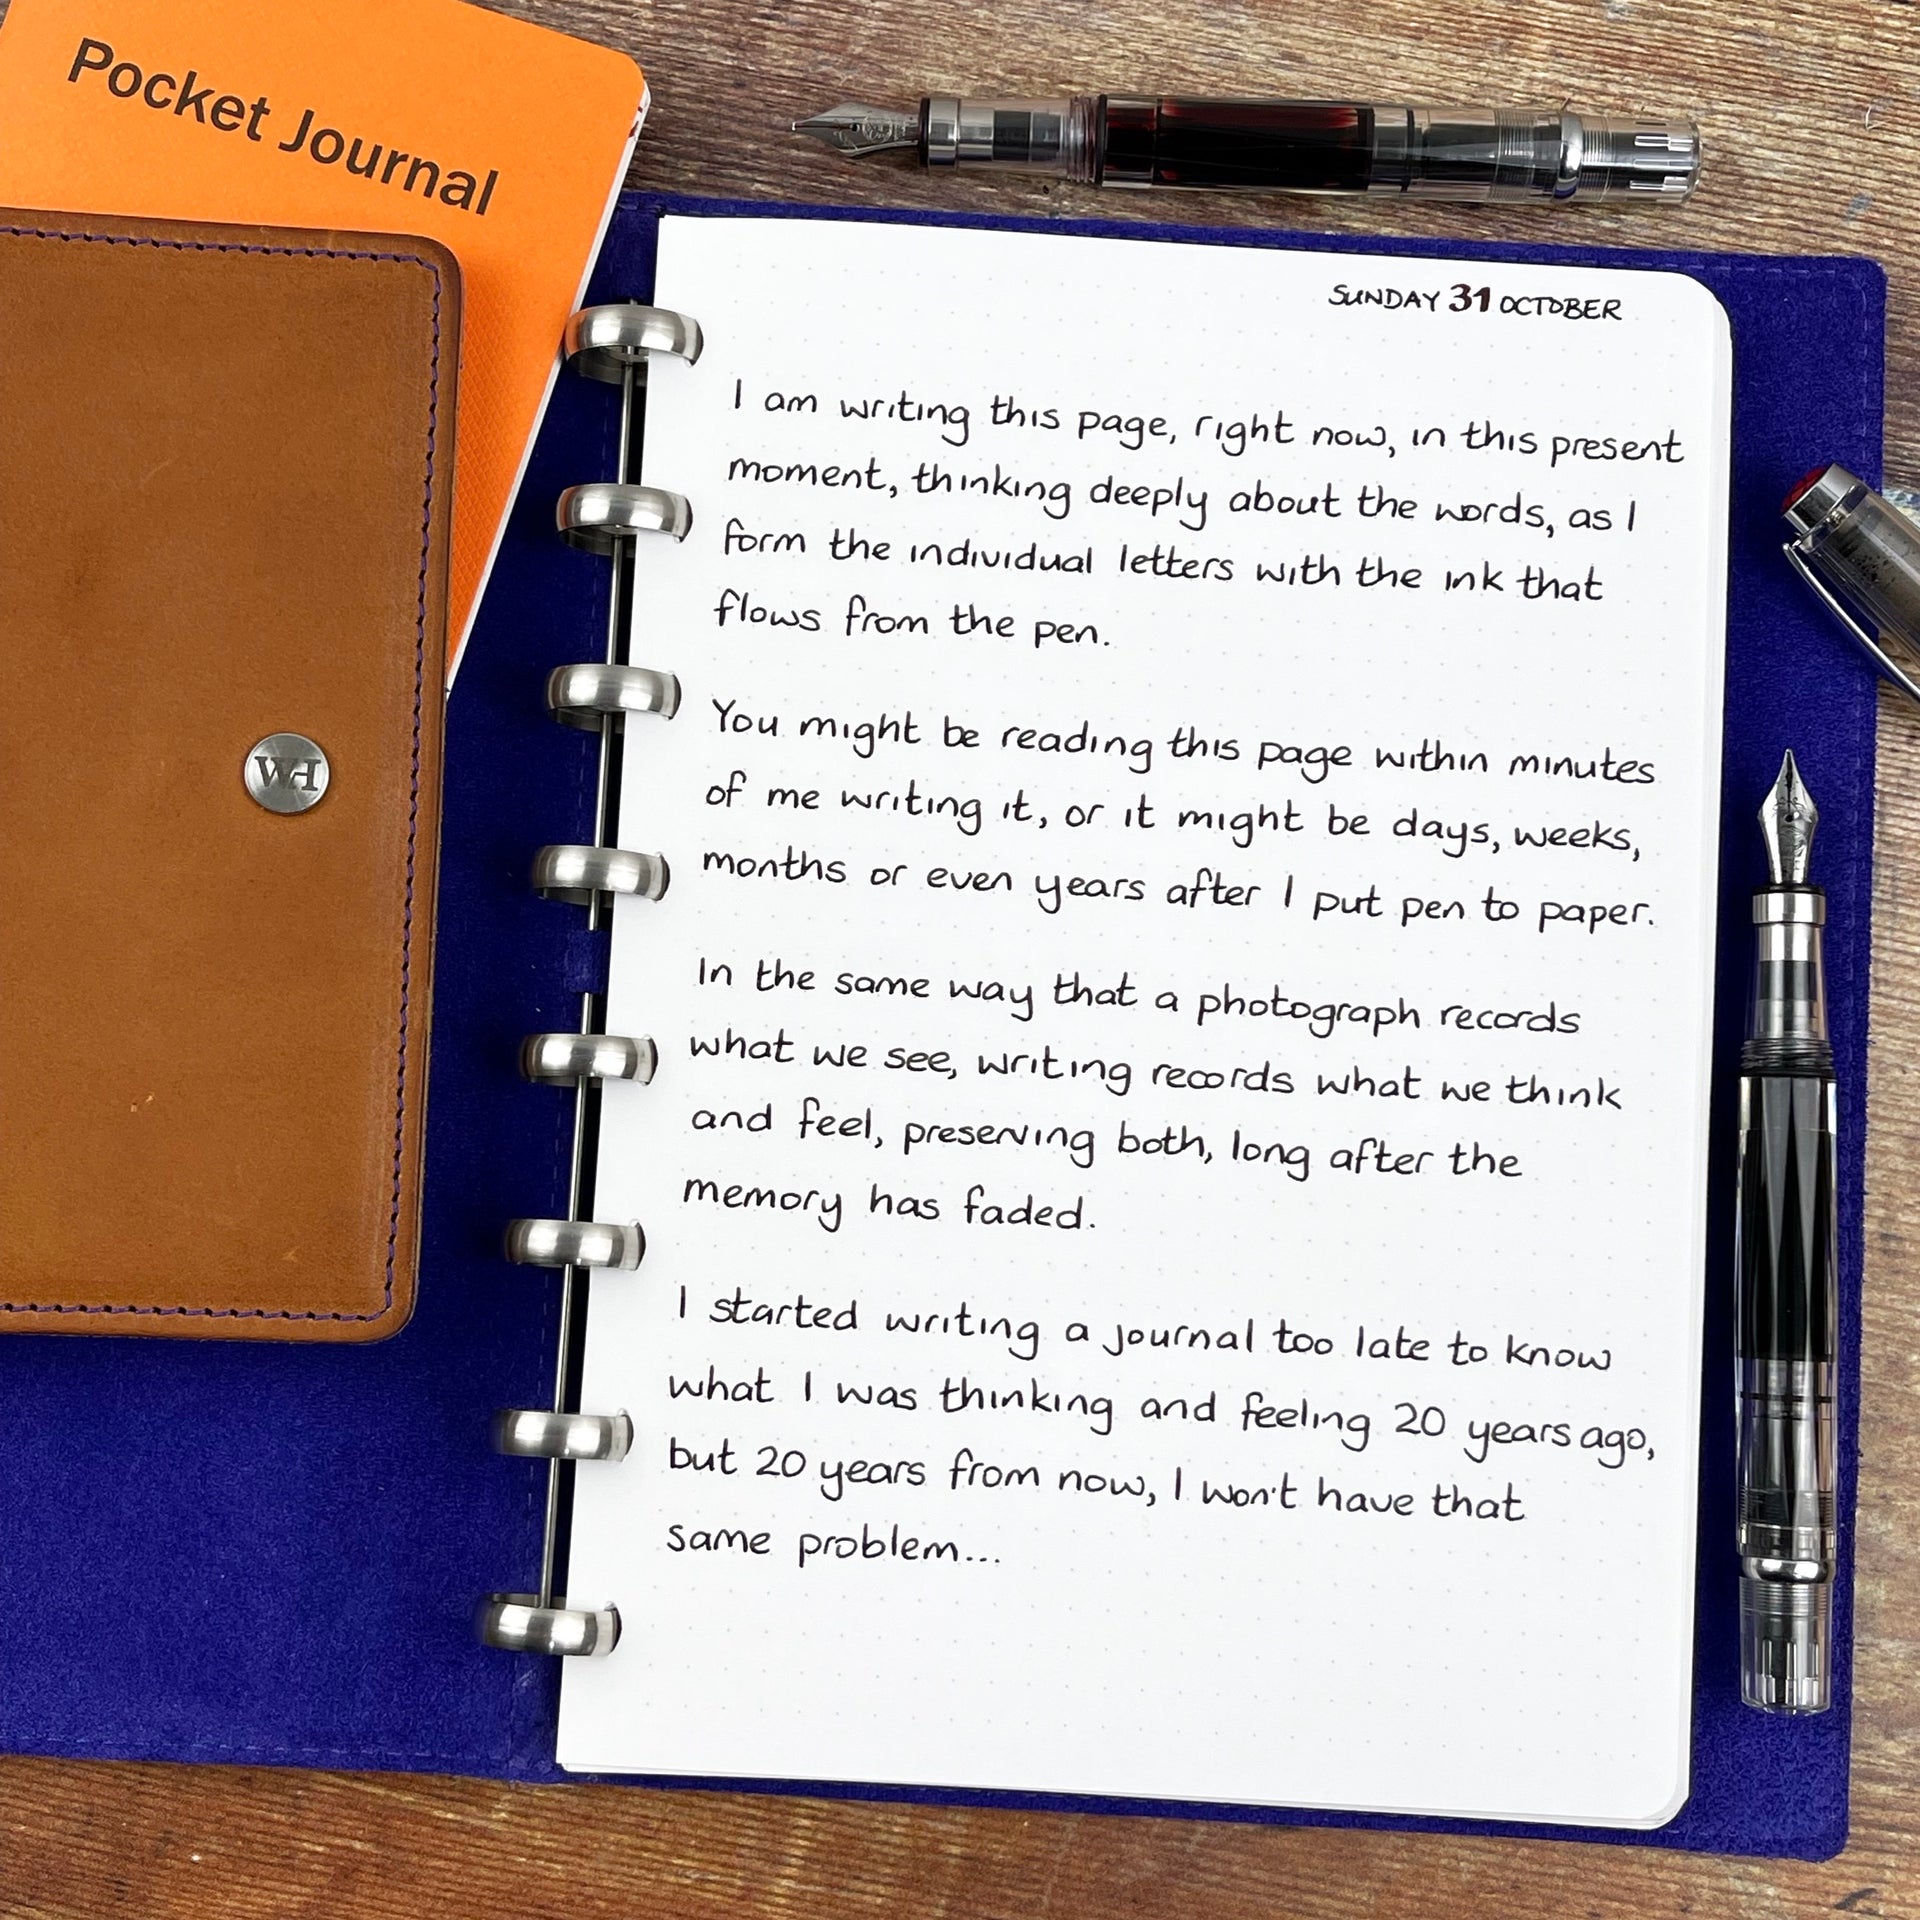 Pocket Journal
WH
SUNDAY 31 OCTOBER
I am writing this page, right now, in this present
moment, thinking deeply about the words, as I
form the individual letters with the ink that
flows from the pen.
You might be reading this page within minutes
of me writing it, or it might be days, weeks,
months or even years after I put pen to paper.
In the same way that a photograph records
what we see, writing records what we think
and feel, preserving both, long after the
memory has faded.
I started writing a journal too late to know
what I was thinking and feeling 20 years ago,
but 20 years from now, I won't have that
same problem...